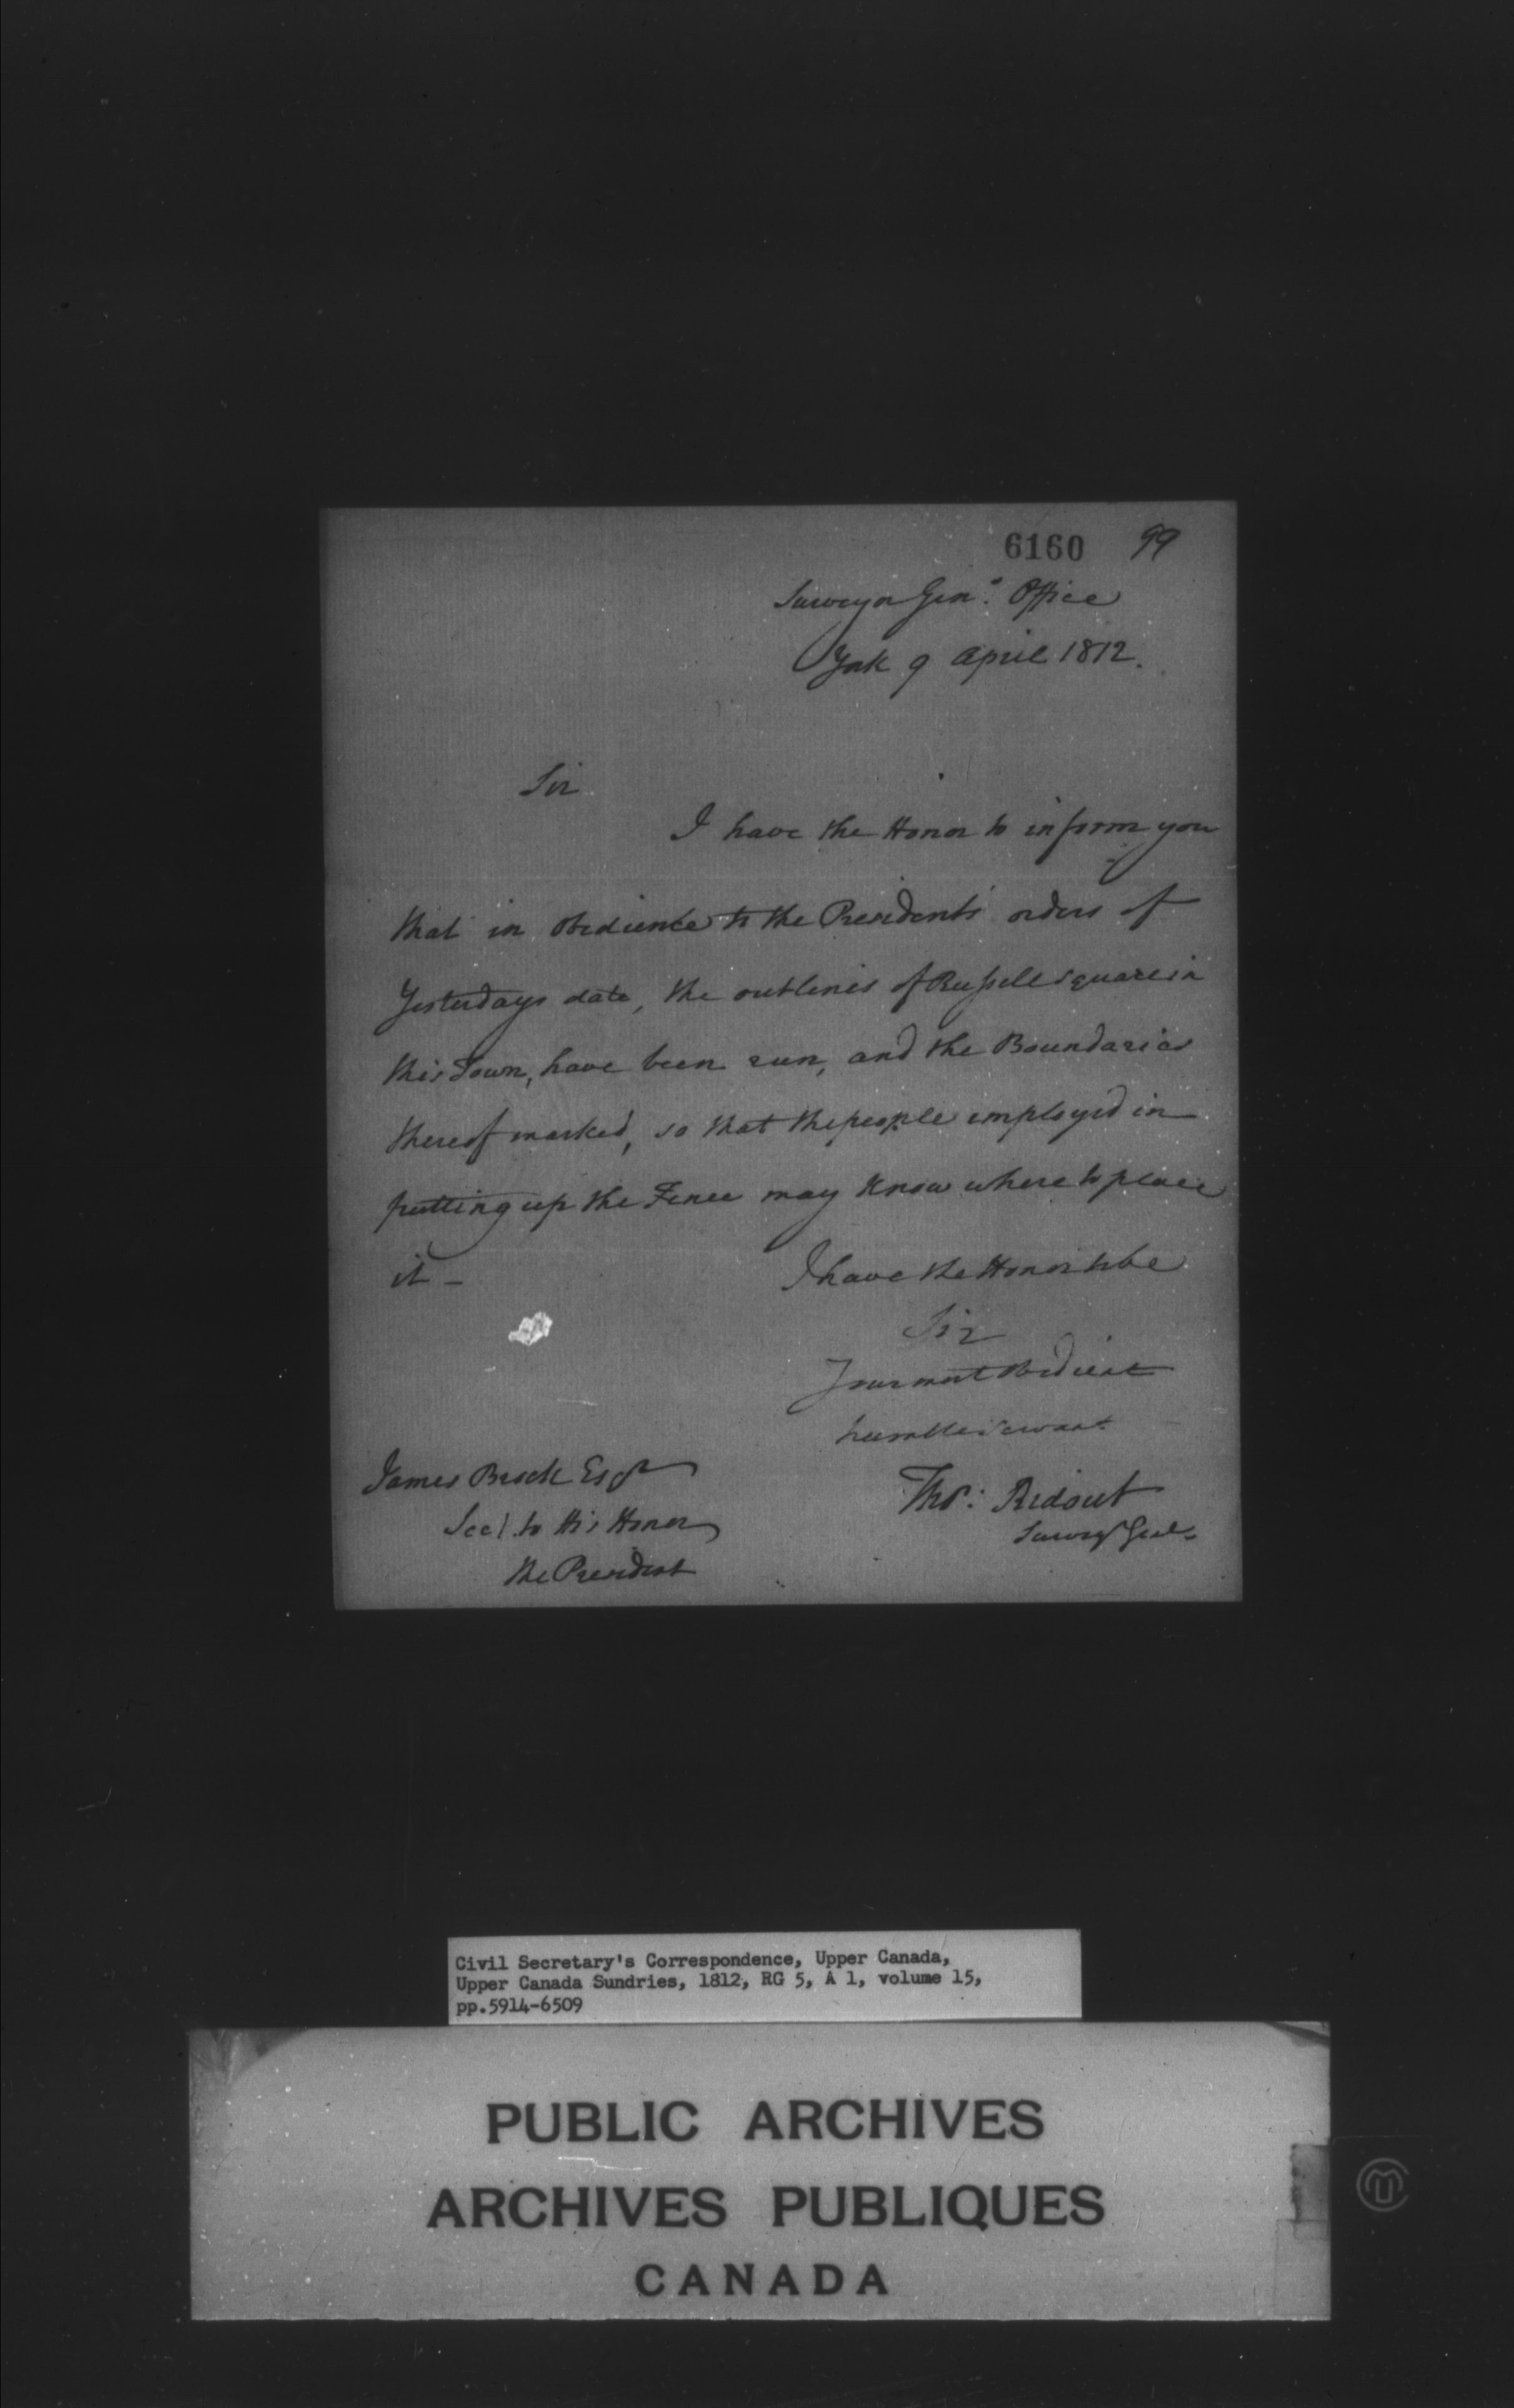 6160 99
Surveyor Gen.s Office
York 9 April 1812.
Sir
I have the Honor to inform you
that in Obedience to the Presidents orders of
Yesterdays date, the outlines of Russell square in
this Town, have been run, and the Boundaries
thereof marked, so that the people employed in
putting up the Fence may know where to place
it –
I have the Honor to be
Sir
Your most Obedient
humble Servant
James Brock Esqr
Secy. to His Honor
the President
Thos: Ridout
Survey Genl.
Civil Secretary's Correspondence, Upper Canada,
Upper Canada Sundries, 1812, RG 5, A 1, volume 15,
pp.5914-6509
PUBLIC ARCHIVES
ARCHIVES PUBLIQUES
CANADA